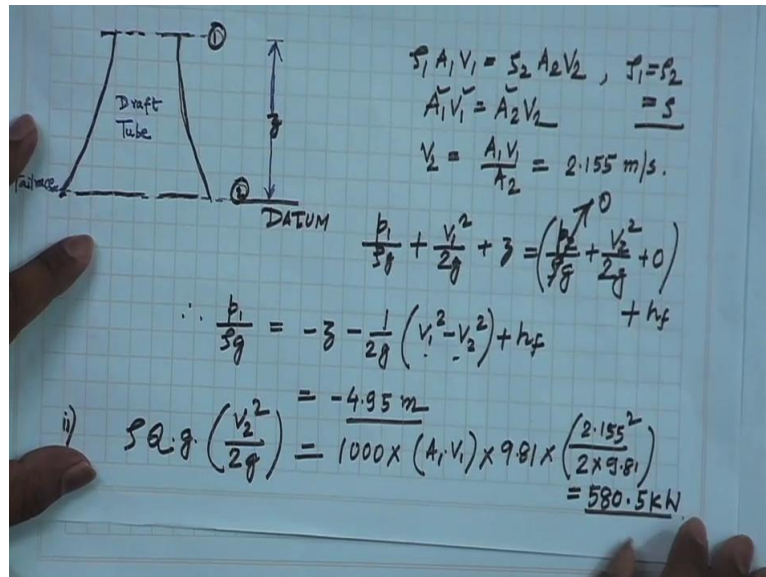 ①
Draft
Tube
z
Tailrace
②
DATUM
ρ₁ A₁ V₁ = ρ₂ A₂ V₂ , ρ₁ = ρ₂
A₁ V₁ = A₂ V₂ = ρ
V₂ = A₁ V₁ / A₂ = 2.155 m/s.
p₁/ρg + V₁²/2g + z = (p₂/ρg + V₂²/2g + 0) + hf
0
∴ p₁/ρg = -z - 1/2g (V₁² - V₂²) + hf
= -4.95 m
ii) ρ Q. g. (V₂²/2g) = 1000 × (A₁. V₁) × 9.81 × (2.155²/2×9.81)
= 580.5 kW